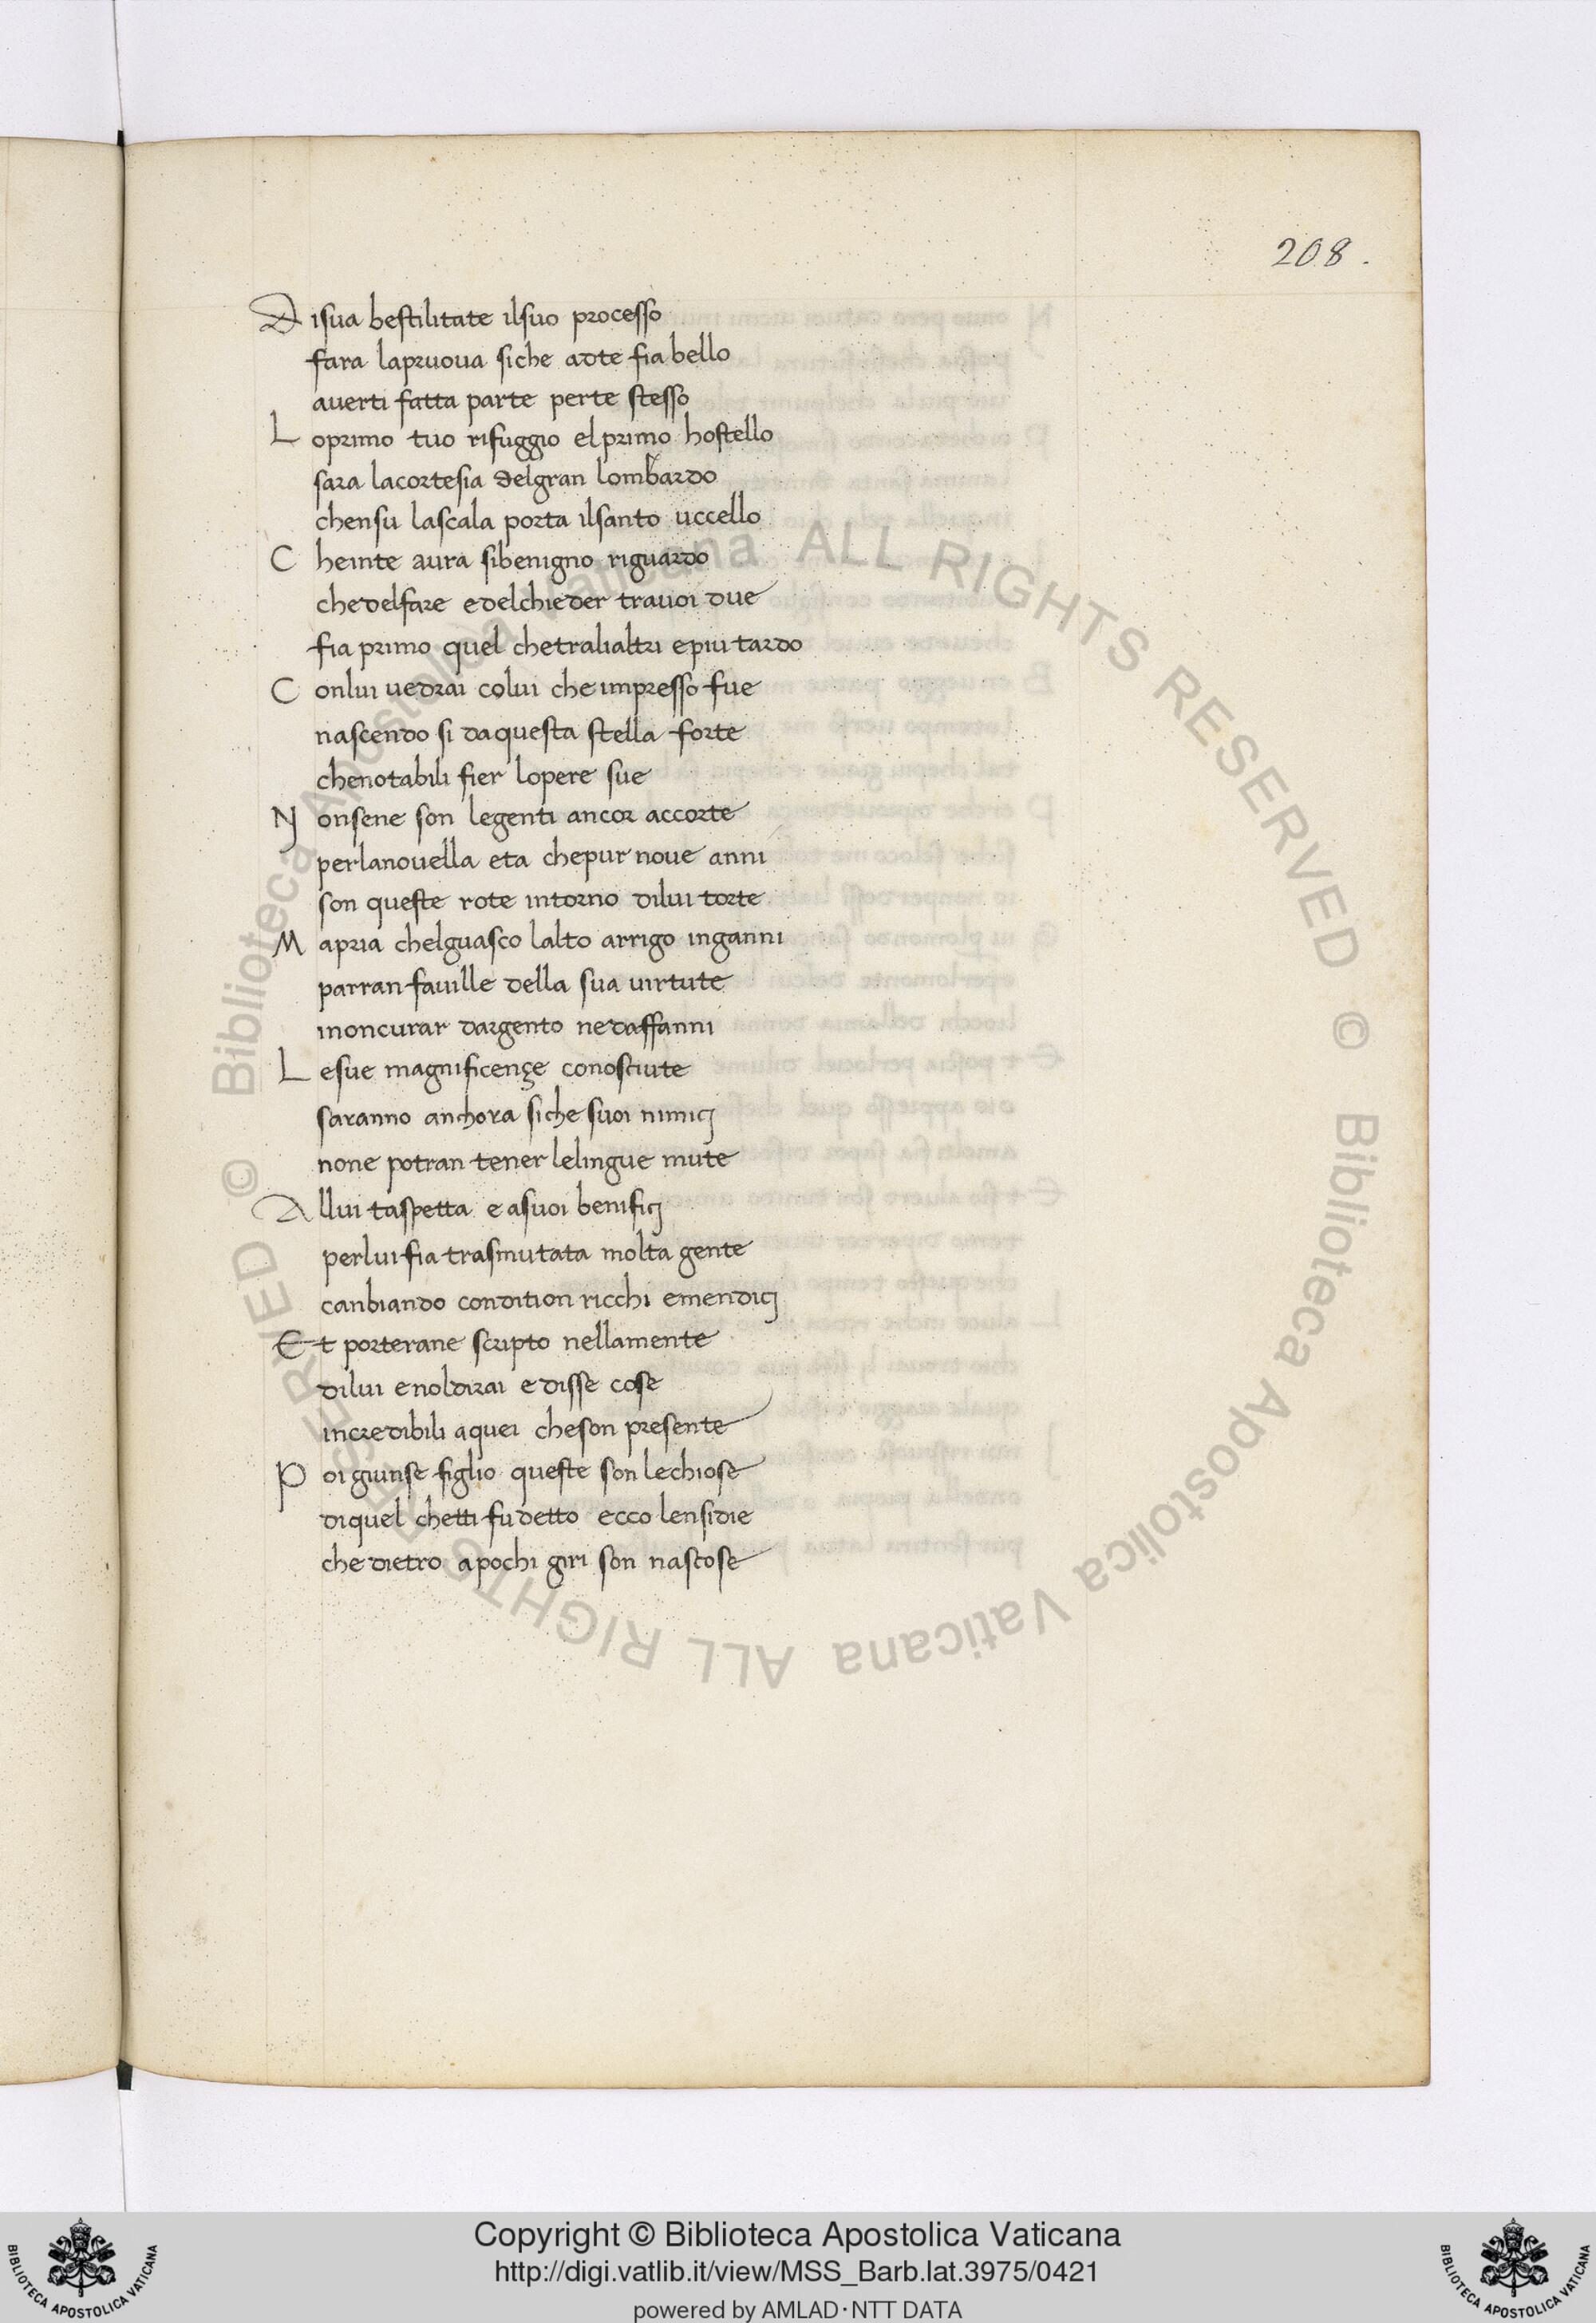 208.
Disua bestilitate ilsuo processo
fara lapruova siche adte fia bello
averti fatta parte perte stesso
Loprimo tuo rifuggio elprimo hostello
sara lacortesia delgran lombardo
chensu lascala porta ilsanto uccello
Cheinte aura sibenigno riguardo
chedelfare edelchieder travoi due
fia primo quel chetralialtri epiu tardo
Conlui vedrai colui che impresso fue
nascendo si daquesta stella forte
chenotabili fier lopere sue
Nonsene son legenti ancor accorte
perlanovella eta chepur nove anni
son queste rote intorno dilui torte
Mapria chelguasco lalto arrigo inganni
parran faville della sua virtute
inoncurar dargento nedaffanni
Lesue magnificençe conosciute
saranno anchora siche suoi nimicj
none potran tener lelingue mute
Allui taspetta e asuoi benificj
perlui fia trasmutata molta gente
canbiando condition ricchi emendicj
Et porterane scripto nellamente
dilui enoldirai edisse cose
incredibili aquei cheson presente
Poi giunse figlio queste son lechiose
diquel chetti fudetto ecco lensidie
che dietro apochi giri son nascose
Biblioteca Apostolica Vaticana ALL RIGHTS RESERVED © Biblioteca Apostolica Vaticana ALL RIGHTS RESERVED ©
Copyright © Biblioteca Apostolica Vaticana
http://digi.vatlib.it/view/MSS_Barb.lat.3975/0421
powered by AMLAD·NTT DATA
BIBLIOTECA APOSTOLICA VATICANA
BIBLIOTECA APOSTOLICA VATICANA